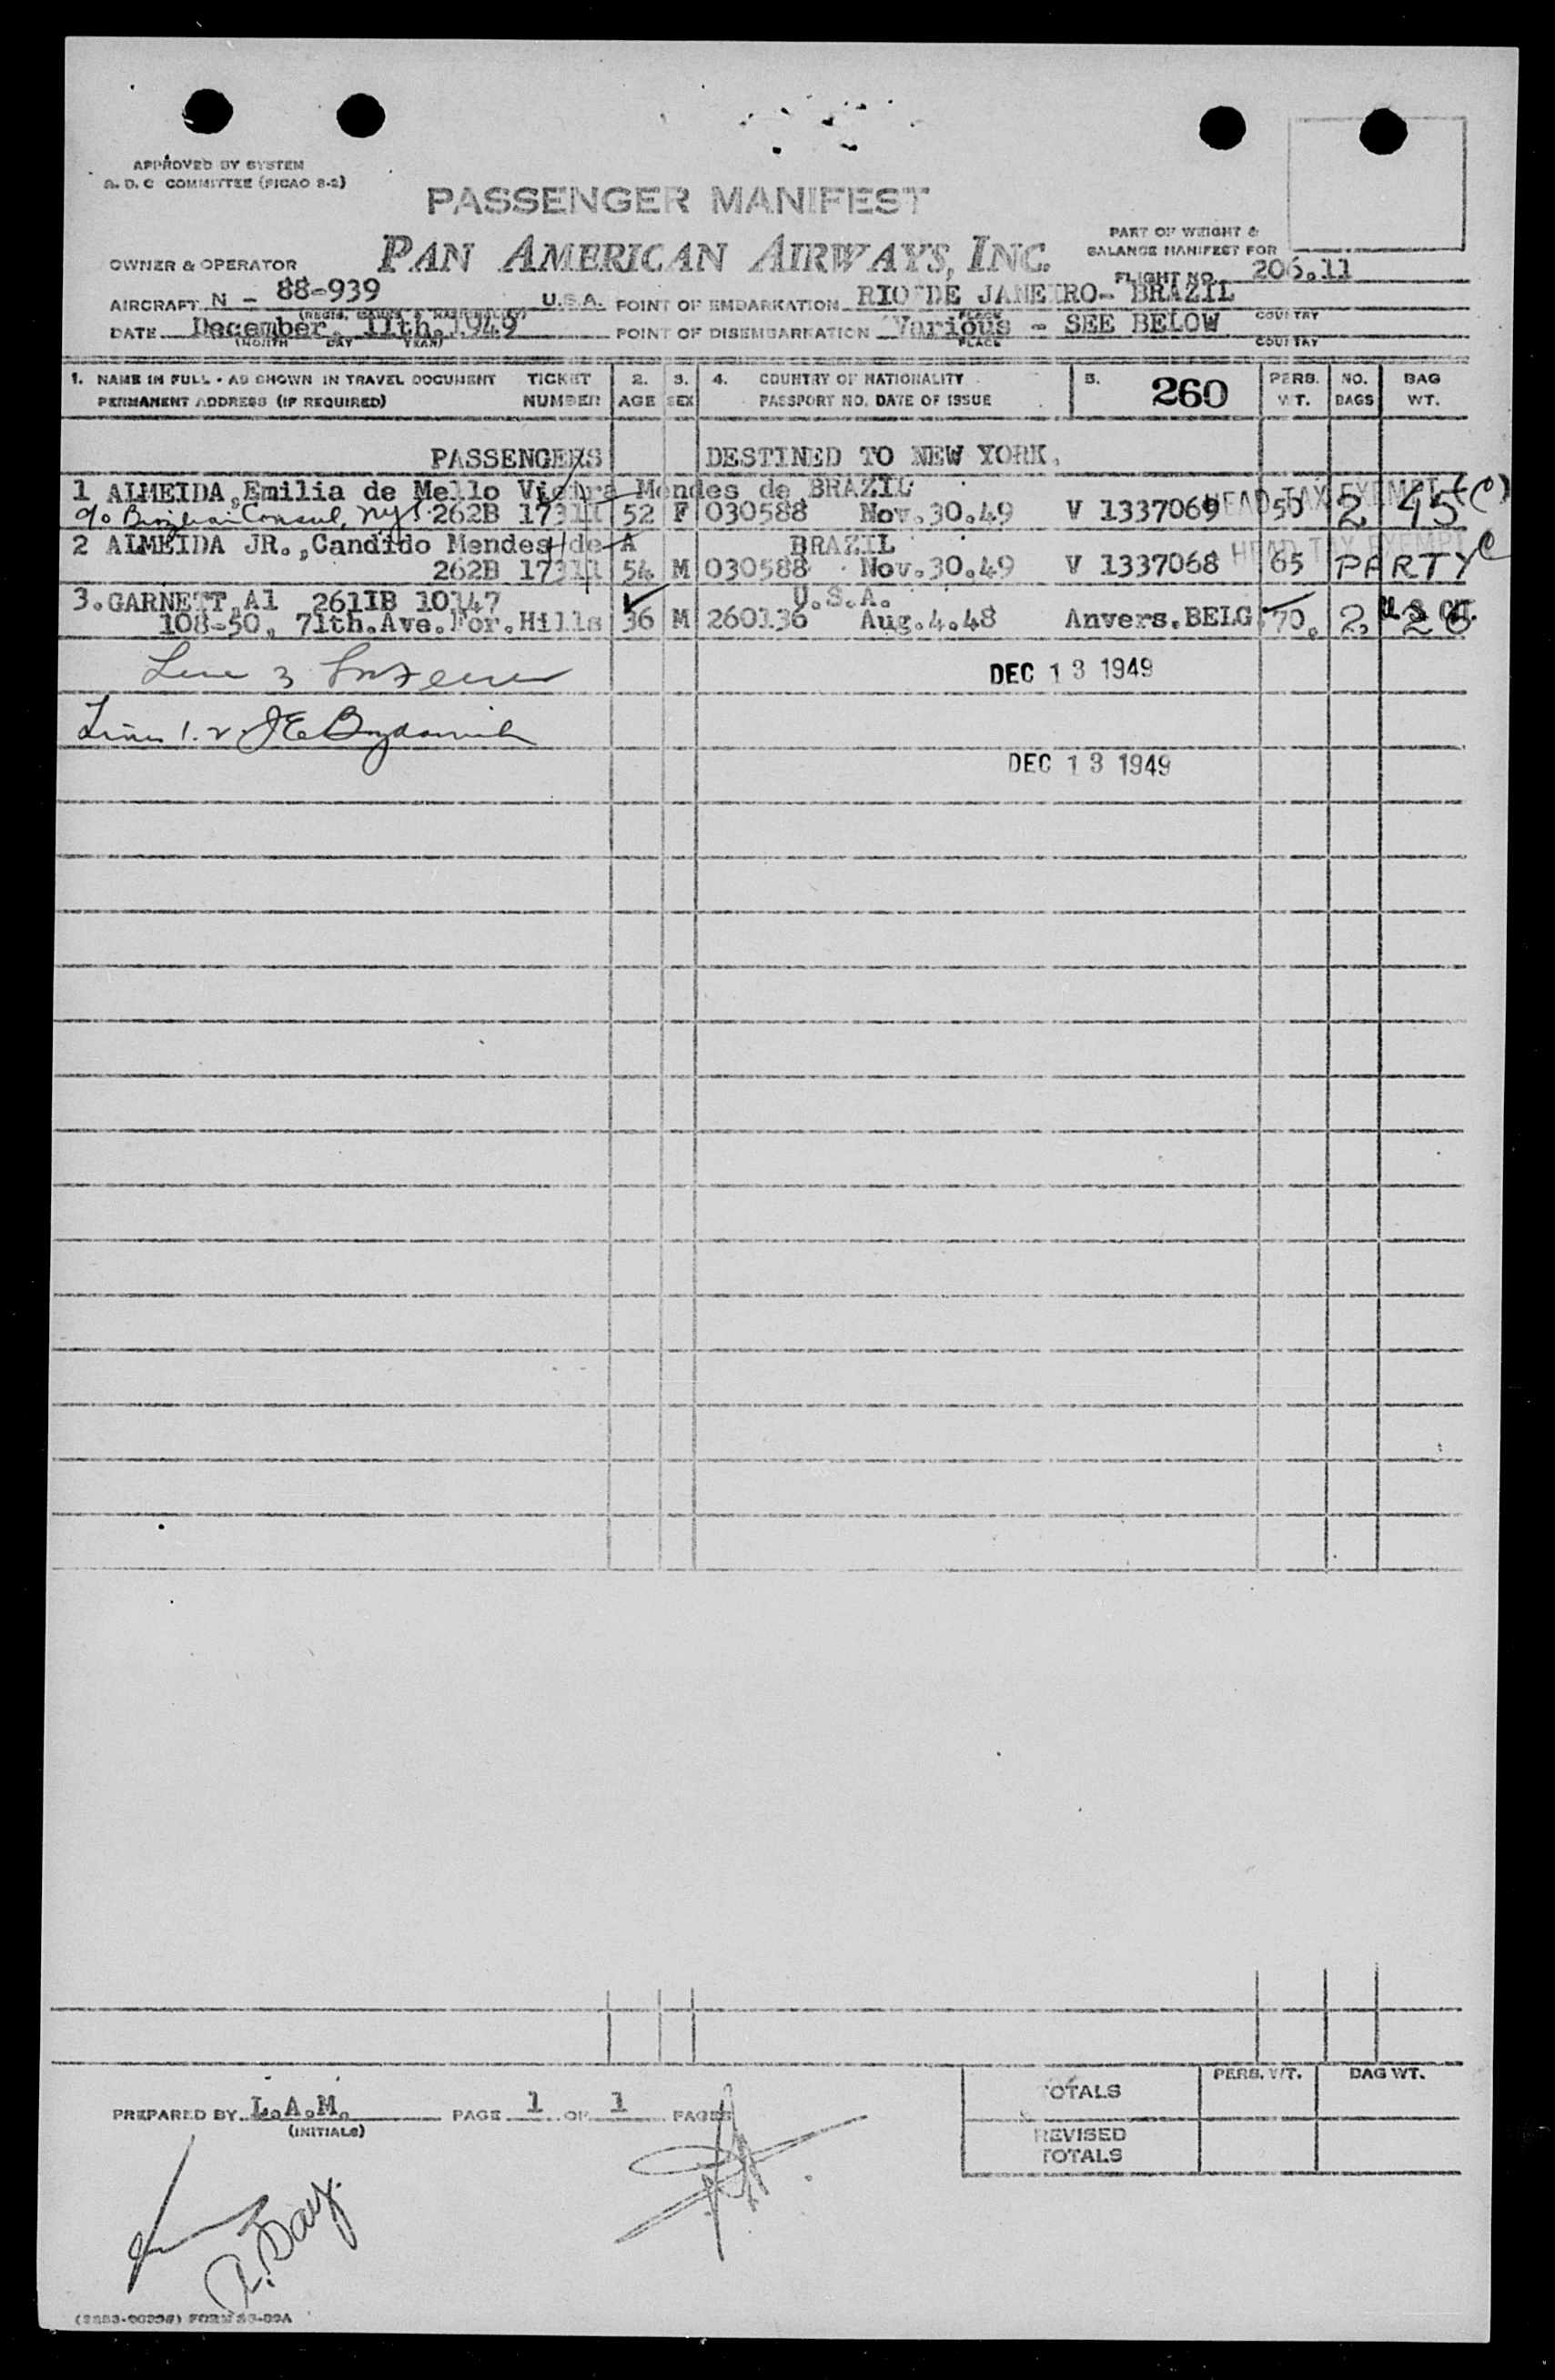 APPROVED BY SYSTEM
A. D. C COMMITTEE (PICAO 8-2)
PASSENGER MANIFEST
PAN AMERICAN AIRWAYS, INC.
PART OF WEIGHT &
BALANCE MANIFEST FOR
OWNER & OPERATOR
FLIGHT NO. 206.11
AIRCRAFT N - 88-939 U.S.A. POINT OF EMBARKATION RIO DE JANEIRO- BRAZIL
PLACE COUNTRY
DATE December, 11th. 1949 POINT OF DISEMBARKATION Various - SEE BELOW
(MONTH DAY YEAR) PLACE COUNTRY
1. NAME IN FULL - AS SHOWN IN TRAVEL DOCUMENT TICKET 2. 3. 4. COUNTRY OF NATIONALITY 5. 260 PERS. NO. BAG
PERMANENT ADDRESS (IF REQUIRED) NUMBER AGE SEX PASSPORT NO. DATE OF ISSUE WT. BAGS WT.
PASSENGERS DESTINED TO NEW YORK.
1 ALMEIDA, Emilia de Mello Vieira Mendes de BRAZIL HEAD TAX EXEMPT (C)
c/o Brazilian Consul, NY 262B 17311 52 F 030588 Nov.30.49 V 1337069 50 2 45
2 ALMEIDA JR., Candido Mendes de A BRAZIL HEAD TAX EXEMPT C
262B 17311 54 M 030588 Nov.30.49 V 1337068 65 PARTY
3. GARNETT, Al 261IB 10147 U.S.A.
108-50, 71th.Ave.For.Hills 36 M 260136 Aug.4.48 Anvers.BELG 70. 2, U.S. CIT.
Line 3
DEC 13 1949
Lines 1.2
DEC 13 1949
PREPARED BY L.A.M. PAGE 1 OF 1 PAGES
(INITIALS)
PERS. WT. BAG WT.
TOTALS
REVISED
TOTALS
R. Day.